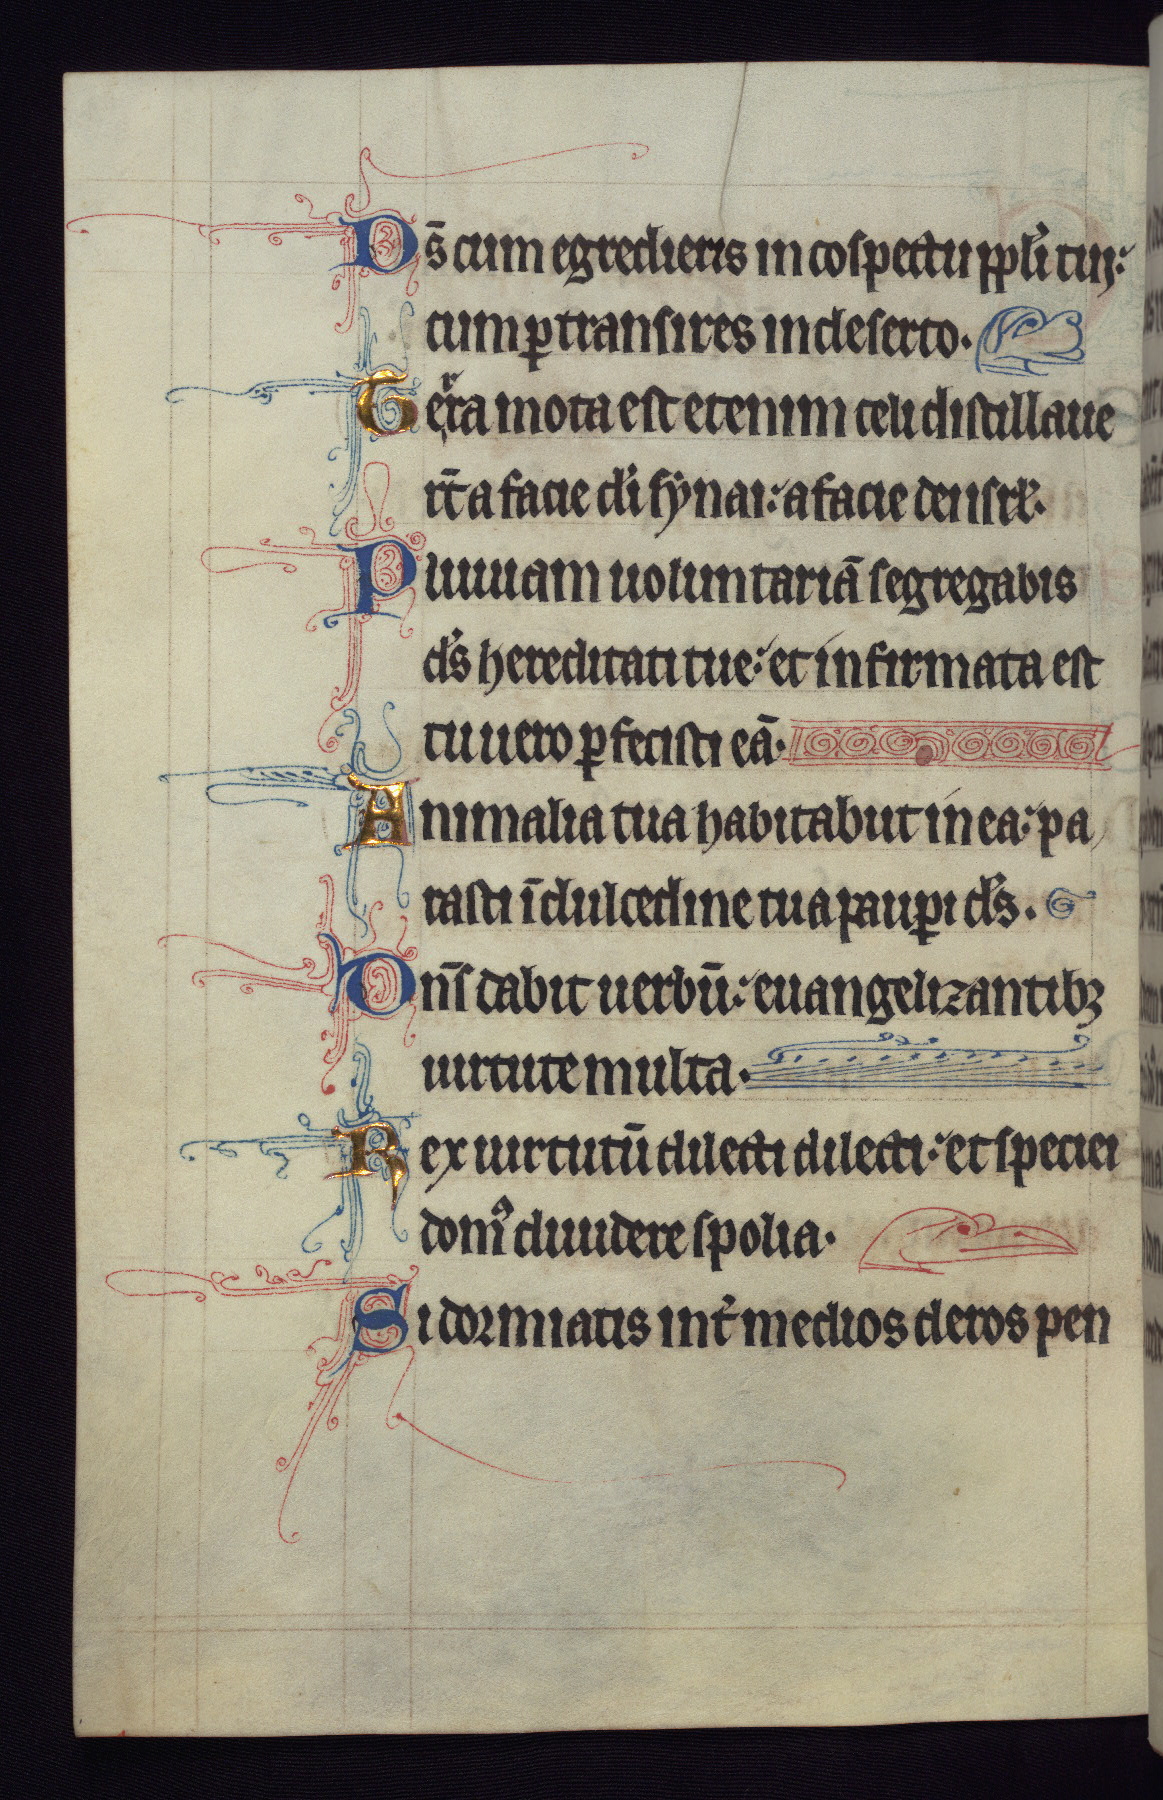 Ds̄ cum egredieris in cospectu pp̄li tui:
cum ꝑtransires in deserto.
Terͬa mota est etenim celi distillaue
rt̄ a facie di̾ sẏnai: a facie dei isrl̾.
Pluuiam uoluntariā segregabis
ds̾ hereditati tue: et infirmata est
tu uero ꝑfecisti eā.
Animalia tua habitabut in ea: pa
rasti ī dulcedine tua pauꝑi ds̾.
Dn̄s dabit uerbū: euangelizantibꝫ
uirtute multa.
Rex uirtutū dilecti dilecti: et speciei
domꝰ diuidere spolia.
Si dormiatis int̾ medios cleros pen